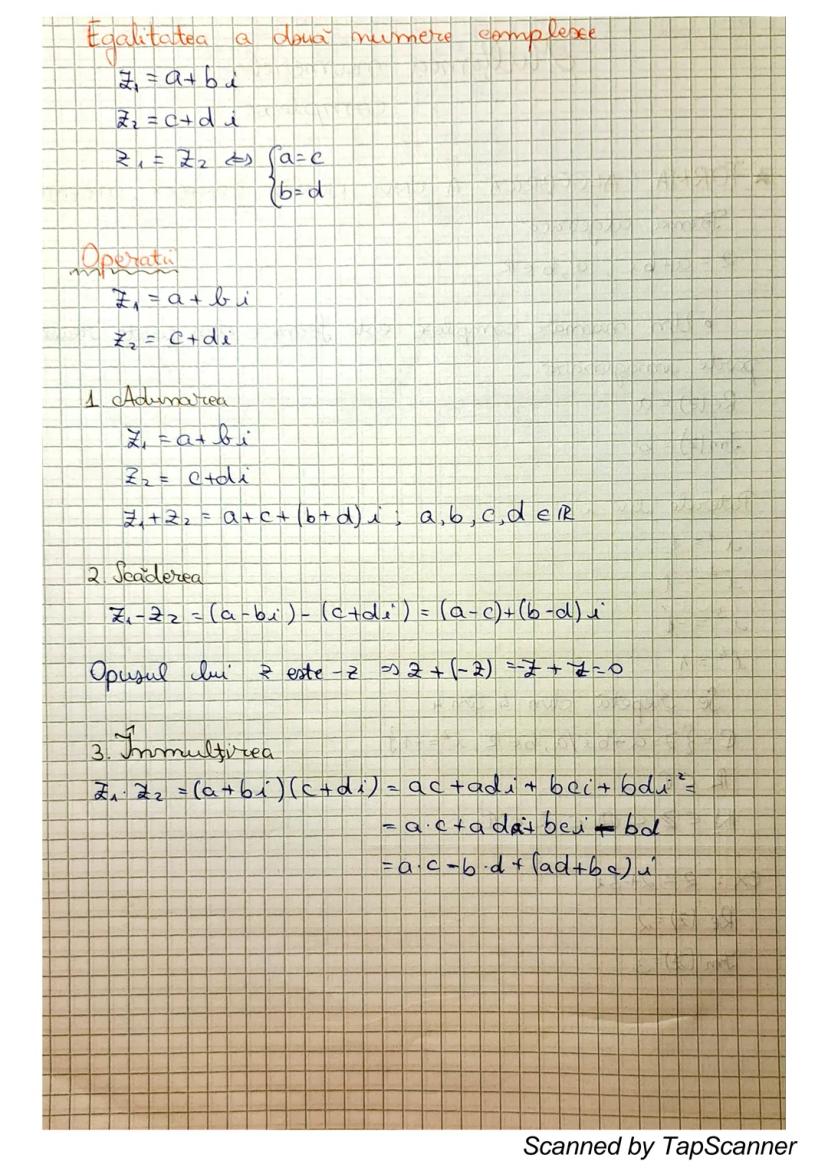 Egalitatea a două numere complexe
z₁ = a + b i
z₂ = c + d i
z₁ = z₂ ⇔ { a = c
b = d
Operatii
z₁ = a + b i
z₂ = c + di
1. Adunarea
z₁ = a + b i
z₂ = c + di
z₁ + z₂ = a + c + (b + d) i ; a, b, c, d ∈ ℝ
2. Scăderea
z₁ - z₂ = (a - bi) - (c + di) = (a - c) + (b - d) i
Opusul lui z este -z ⇒ z + (-z) = -z + z = 0
3. Înmulțirea
z₁ · z₂ = (a + bi)(c + di) = ac + adi + bci + bdi² =
= a·c + adi + bci - bd
= a·c - b·d + (ad + bc) i
Scanned by TapScanner